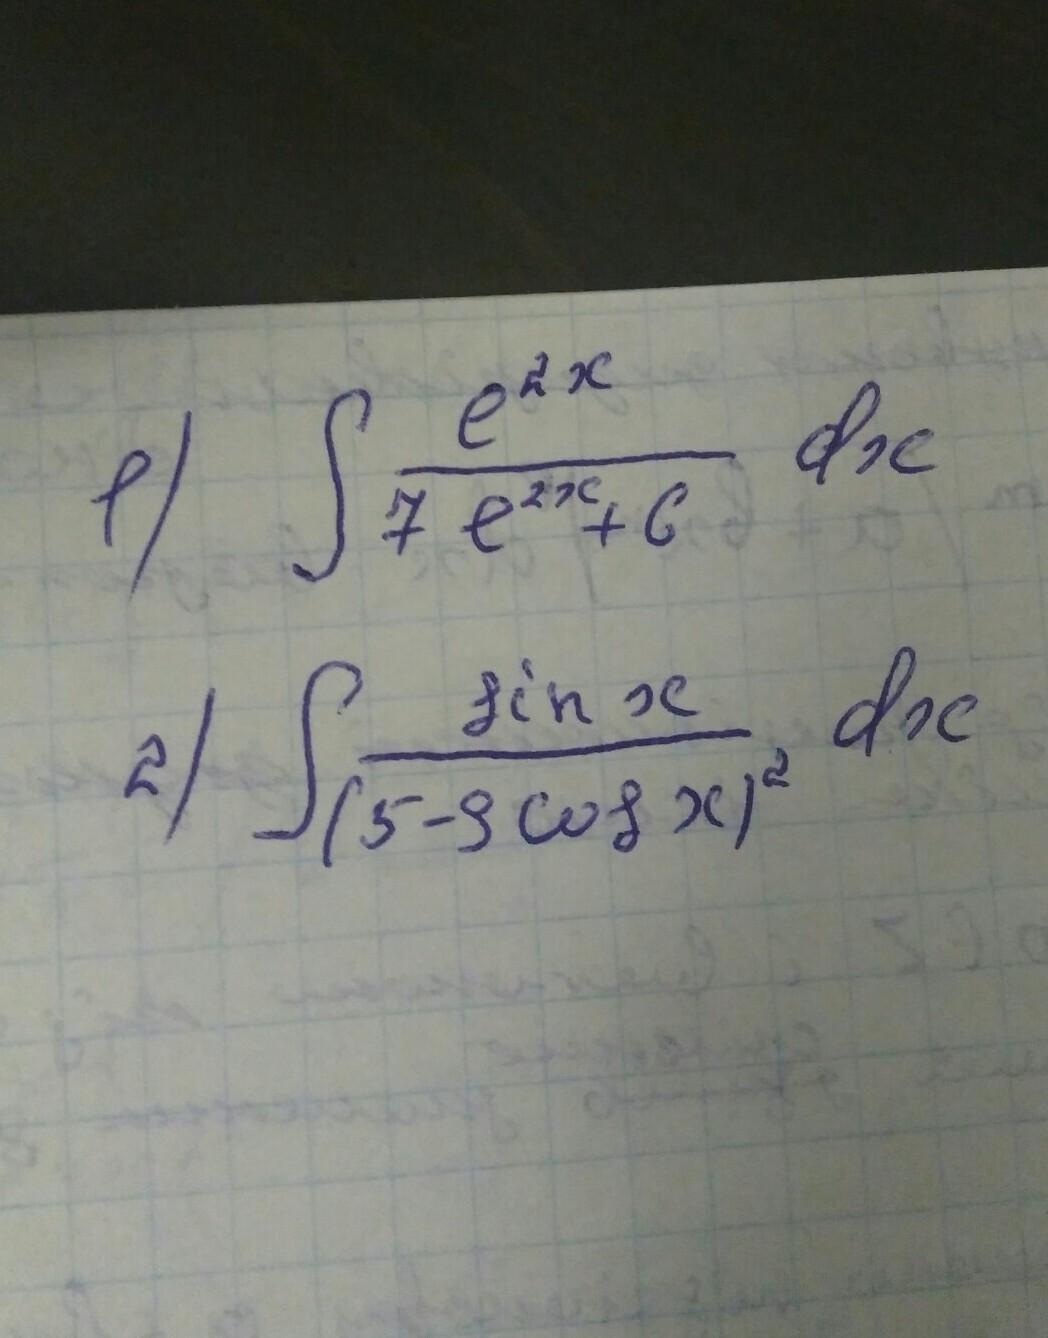 1) ∫ e^{2x} / (7 e^{2x} + 6) dx
2) ∫ sin x / (5 - 9 cos x)^2 dx